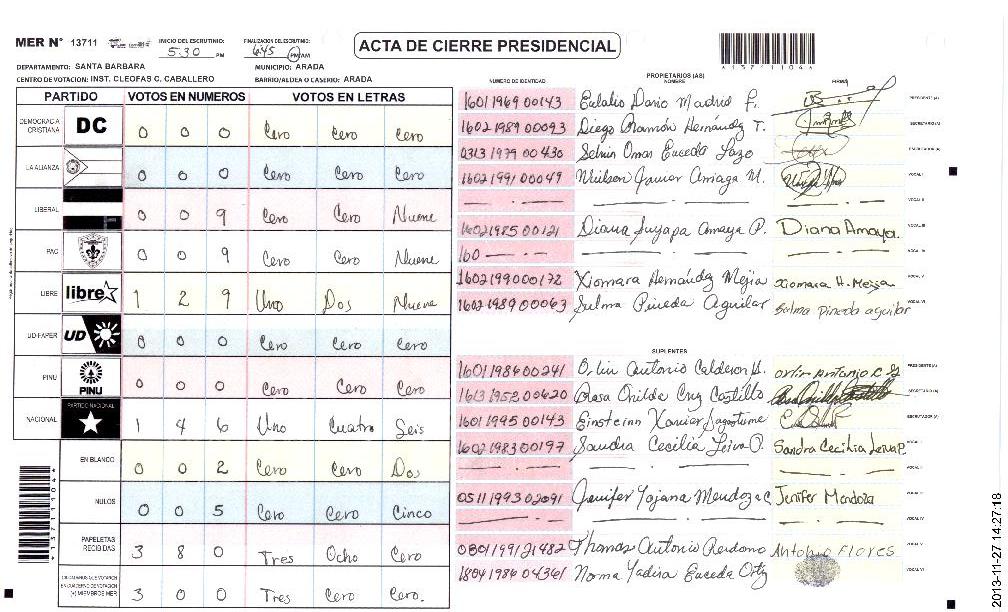 MER N° 13711 INICIO DEL ESCRUTINIO: 5:30 PM FINALIZACION DEL ESCRUTINIO: 6:45 PM AM
ACTA DE CIERRE PRESIDENCIAL
*1371104*
DEPARTAMENTO: SANTA BARBARA MUNICIPIO: ARADA
CENTRO DE VOTACION: INST. CLEOFAS C. CABALLERO BARRIO/ALDEA O CASERIO: ARADA
PARTIDO VOTOS EN NUMEROS VOTOS EN LETRAS
DEMOCRACIA CRISTIANA DC 0 0 0 Cero Cero Cero
LA ALIANZA 0 0 0 Cero Cero Cero
LIBERAL 0 0 9 Cero Cero Nueve
PAC 0 0 9 Cero Cero Nueve
LIBRE libre 1 2 9 Uno Dos Nueve
UD-FAPER UD 0 0 0 Cero Cero Cero
PINU PINU 0 0 0 Cero Cero Cero
NACIONAL PARTIDO NACIONAL 1 4 6 Uno Cuatro Seis
EN BLANCO 0 0 2 Cero Cero Dos
NULOS 0 0 5 Cero Cero Cinco
PAPELETAS RECIBIDAS 3 8 0 Tres Ocho Cero
CIUDADANOS QUE VOTARON EN CUADERNO DE VOTACION (+) MIEMBROS MER 3 0 0 Tres Cero Cero.
*1371104*
PROPIETARIOS (AS)
NUMERO DE IDENTIDAD NOMBRE FIRMA
1601 1969 00143 Eulalio Dario Madrid F. PRESIDENTE (A)
1602 1989 00093 Diego Ramón Hernández T. SECRETARIO (A)
0313 1979 00430 Selvin Omar Euceda Lazo ESCRUTADOR (A)
1602 1991 00049 VOCAL I
VOCAL II
1602 1985 00121 Diana Suyapa Amaya P. Diana Amaya. VOCAL III
160 VOCAL IV
1602 1990 00172 Xiomara Hernández Mejia Xiomara H. Mejia VOCAL V
1602 1989 00063 Selma Pineda Aguilar Selma Pineda aguilar VOCAL VI
SUPLENTES
1601 1986 00241 Orlin Antonio Calderon H. PRESIDENTE (A)
1613 1952 00620 Rosa Onilda Cruz Castillo SECRETARIO (A)
1601 1995 00143 Einsteinn Xavier Sagastume ESCRUTADOR (A)
1602 1983 00197 Sandra Cecilia Leiva P. Sandra Cecilia Leiva P. VOCAL I
VOCAL II
0511 1993 02091 Jenifer Yojana Mendoza C Jenifer Mendoza VOCAL III
VOCAL IV
0801 1991 21482 Thomas Antonio Redondo Antonio Flores VOCAL V
1804 1986 04361 Norma Yadira Euceda Ortiz VOCAL VI
2013-11-27 14:27:18